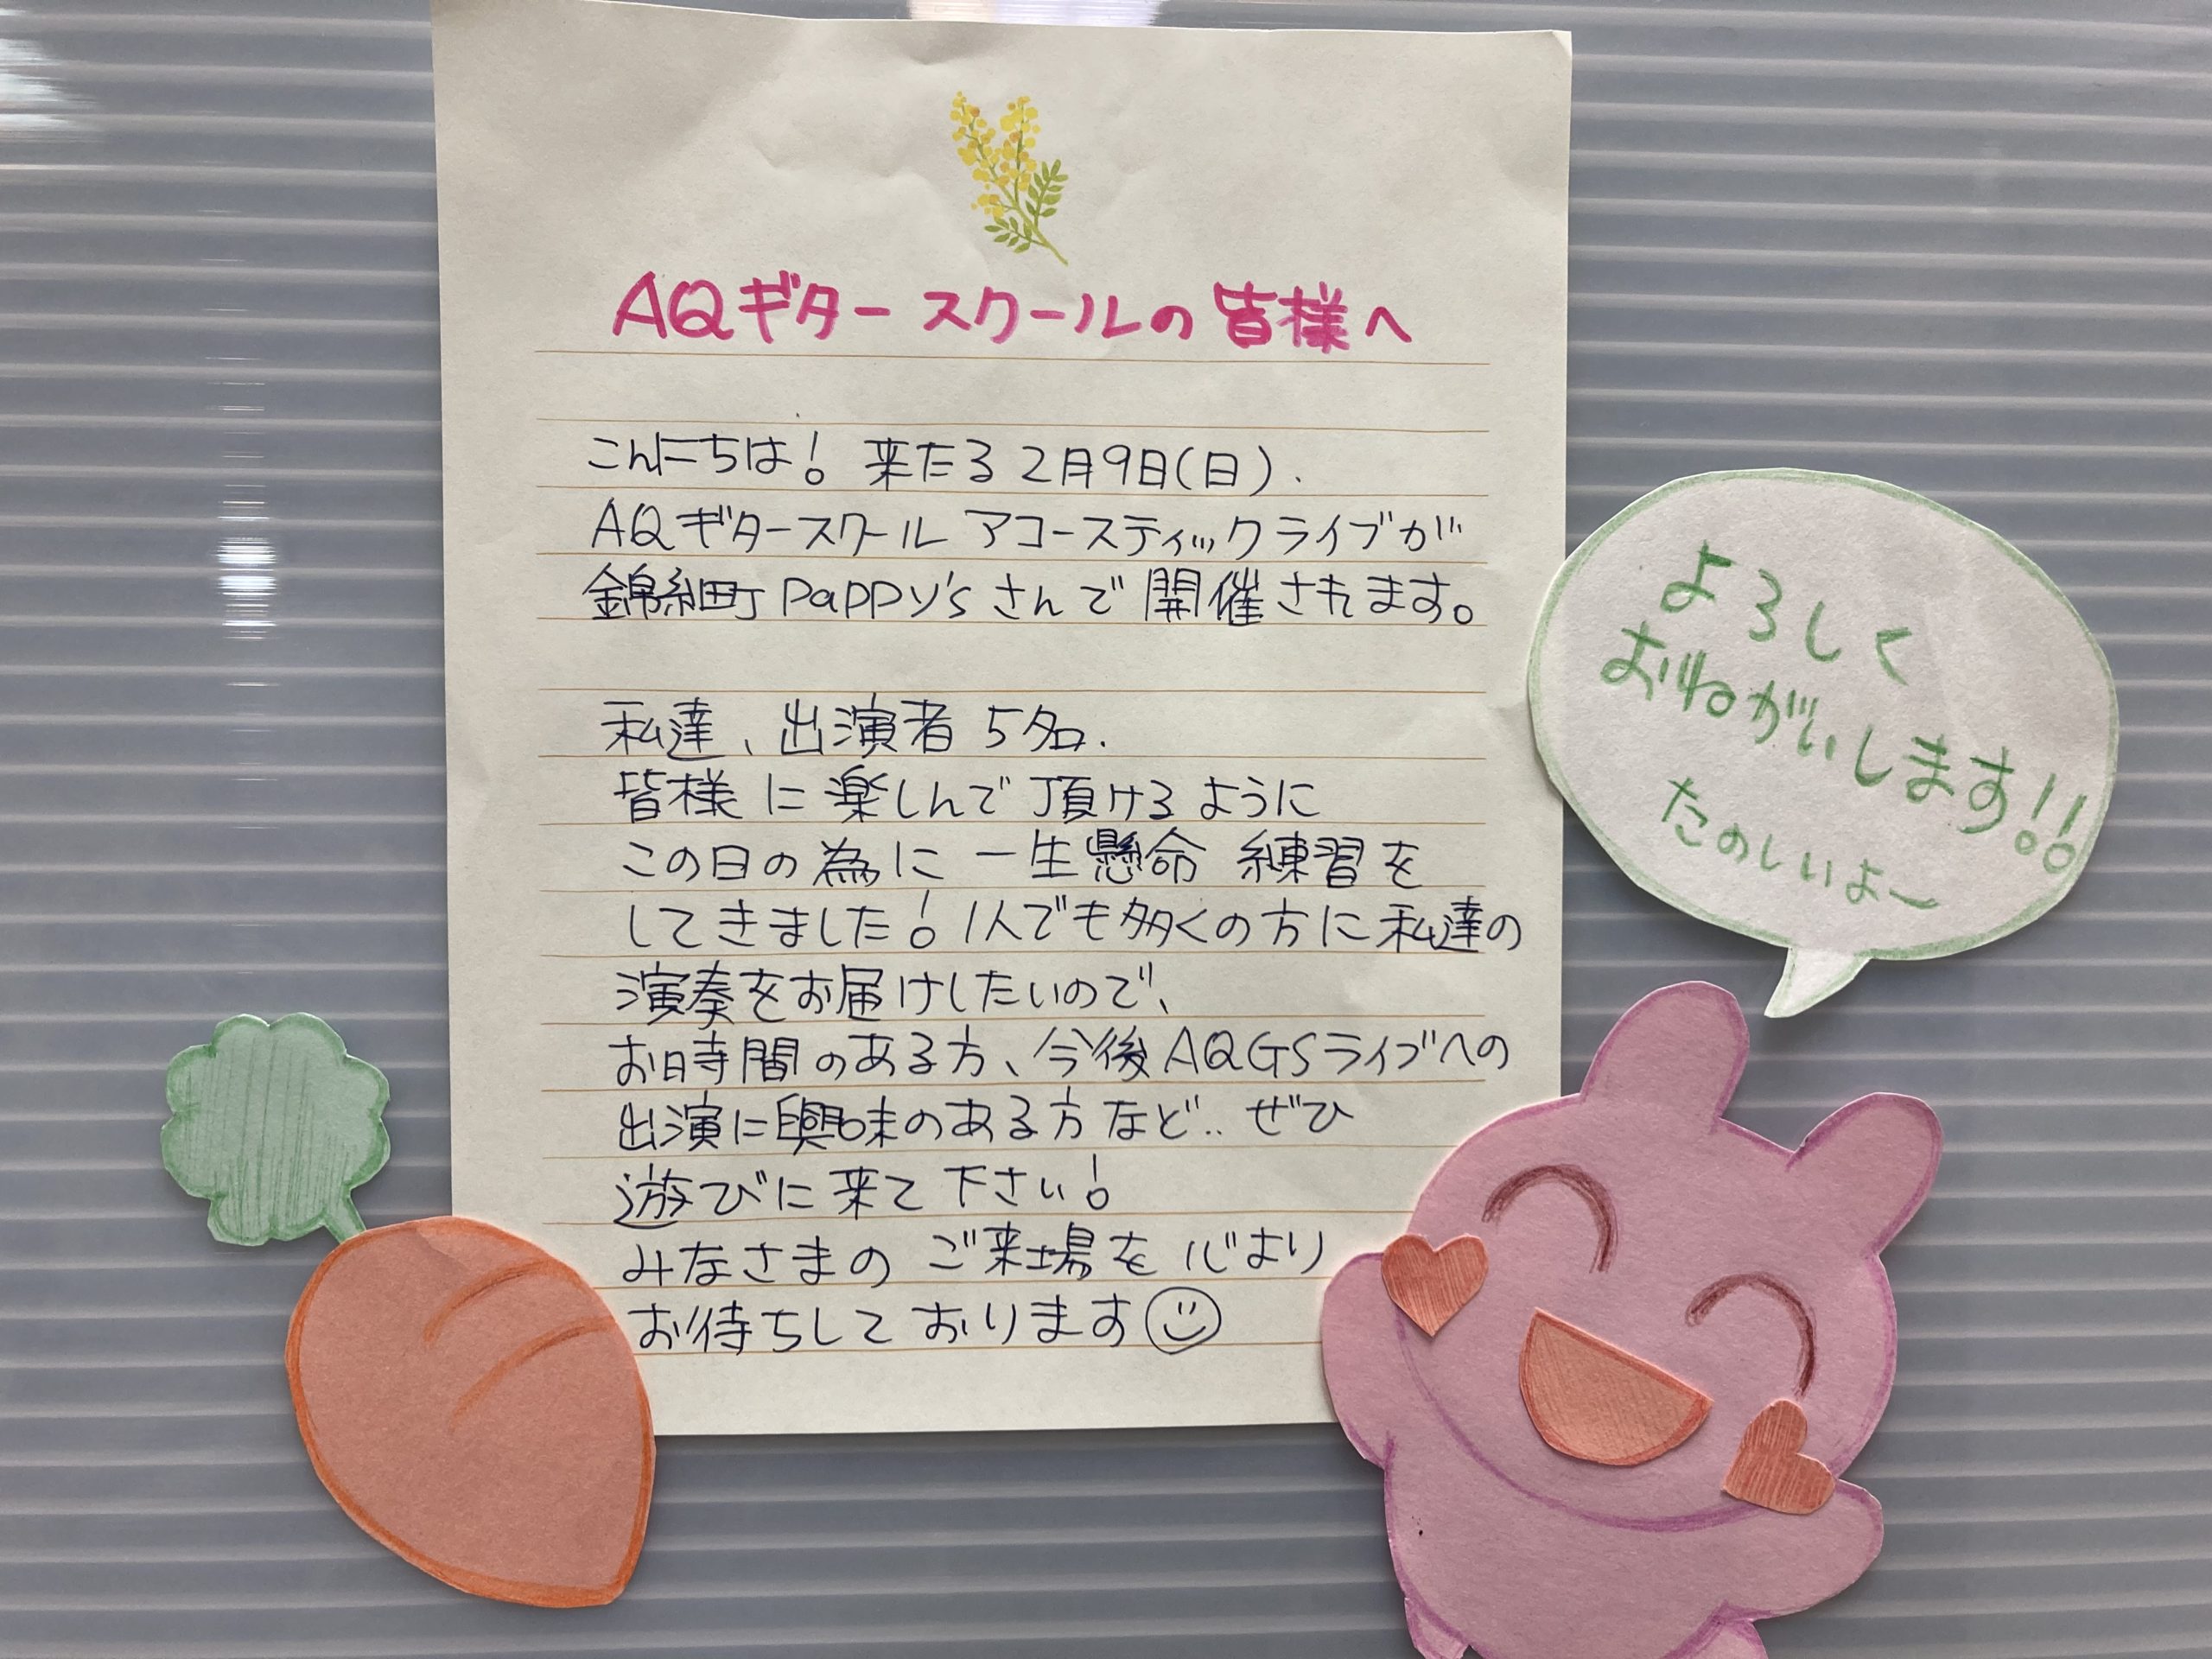 AQギタースクールの皆様へ
こんにちは! 来たる2月9日(日).
AQギタースクール アコースティックライブが
錦糸町 PaPPy'sさんで開催されます。
私達、出演者 5名.
皆様に楽しんで頂けるように
この日の為に一生懸命 練習を
してきました! 1人でも多くの方に私達の
演奏をお届けしたいので、
お時間のある方、今後AQGSライブへの
出演に興味のある方など‥ぜひ
遊びに来て下さい!
みなさまの ご来場を 心より
お待ちしております☺
よろしく
おねがいします!!
たのしいよ〜